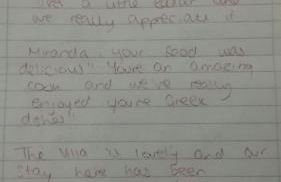 a little easier and
we really appreciate it
Miranda, your food was
delicious" You're an amazing
cook and we've really
enjoyed youre Greek
dishes"
The Villa is lovely and our
stay here has been